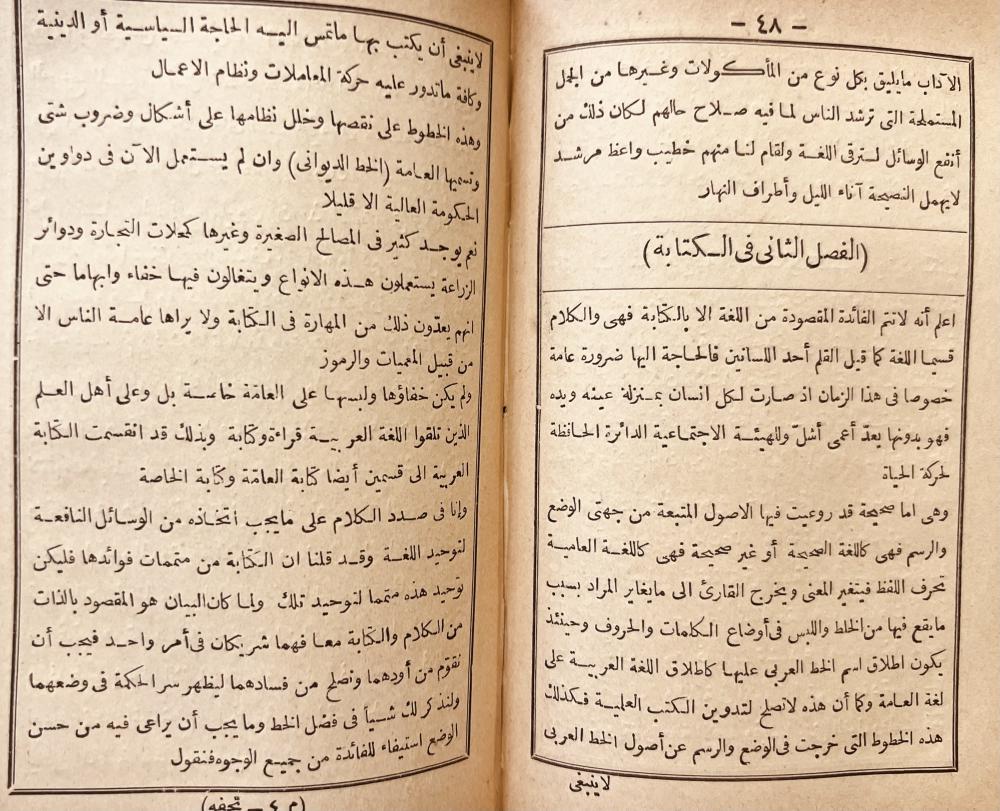 — ٤٨ —
الآداب مايليق بكل نوع من المأكولات وغيرها من الجمل
المستملحة التى ترشد الناس لما فيه صلاح حالهم لكان ذلك من
أنفع الوسائل لترقى اللغة ولقام لنا منهم خطيب واعظ مرشد
لايهمل النصيحة آناء الليل وأطراف النهار
(الفصل الثانى فى الكتابة)
اعلم أنه لاتتم الفائدة المقصودة من اللغة الا بالكتابة فهى والكلام
قسيما اللغة كما قيل القلم أحد اللسانين فالحاجة اليها ضرورة عامة
خصوصا فى هذا الزمان اذ صارت لكل انسان بمنزلة عينه ويده
فهو بدونها يعدّ أعمى أشلّ وللهيئة الاجتماعية الدائرة الحافظة
لحركة الحياة
وهى اما صحيحة قد روعيت فيها الاصول المتبعة من جهتى الوضع
والرسم فهى كاللغة الصحيحة أو غير صحيحة فهى كاللغة العامية
تحرف اللفظ فيتغير المعنى ويخرج القارئ الى مايغاير المراد بسبب
مايقع فيها من الخلط واللبس فى أوضاع الكلمات والحروف وحينئذ
يكون اطلاق اسم الخط العربى عليها كاطلاق اللغة العربية على
لغة العامة وكما أن هذه لاتصلح لتدوين الكتب العلمية فكذلك
هذه الخطوط التى خرجت فى الوضع والرسم عن أصول الخط العربى
لاينبغى
لاينبغى أن يكتب بها ماتمس اليه الحاجة السياسية أو الدينية
وكافة ماتدور عليه حركة المعاملات ونظام الاعمال
وهذه الخطوط على نقصها وخلل نظامها على أشكال وضروب شتى
وتسميها العامة (الخط الديوانى) وان لم يستعمل الآن فى دواوين
الحكومة العالية الا قليلا
نعم يوجد كثير فى المصالح الصغيرة وغيرها كمحلات التجارة ودوائر
الزراعة يستعملون هذه الانواع ويتغالون فيها خفاء وابهاما حتى
انهم يعدّون ذلك من المهارة فى الكتابة ولا يراها عامة الناس الا
من قبيل المعميات والرموز
ولم يكن خفاؤها ولبسها على العامّة خاصة بل وعلى أهل العلم
الذين تلقوا اللغة العربية قراءة وكتابة وبذلك قد انقسمت الكتابة
العربية الى قسمين أيضا كتابة العامّة وكتابة الخاصة
وانا فى صدد الكلام على مايجب اتخاذه من الوسائل النافعة
لتوحيد اللغة وقد قلنا ان الكتابة من متممات فوائدها فليكن
توحيد هذه متمما لتوحيد تلك ولما كان البيان هو المقصود بالذات
من الكلام والكتابة معا فهما شريكان فى أمر واحد فيجب أن
نقوّم من أودهما ونصلح من فسادهما ليظهر سر الحكمة فى وضعهما
ولنذكر لك شيأ فى فضل الخط وما يجب أن يراعى فيه من حسن
الوضع استيفاء للفائدة من جميع الوجوه فنقول
(م ٤ — تحفه)